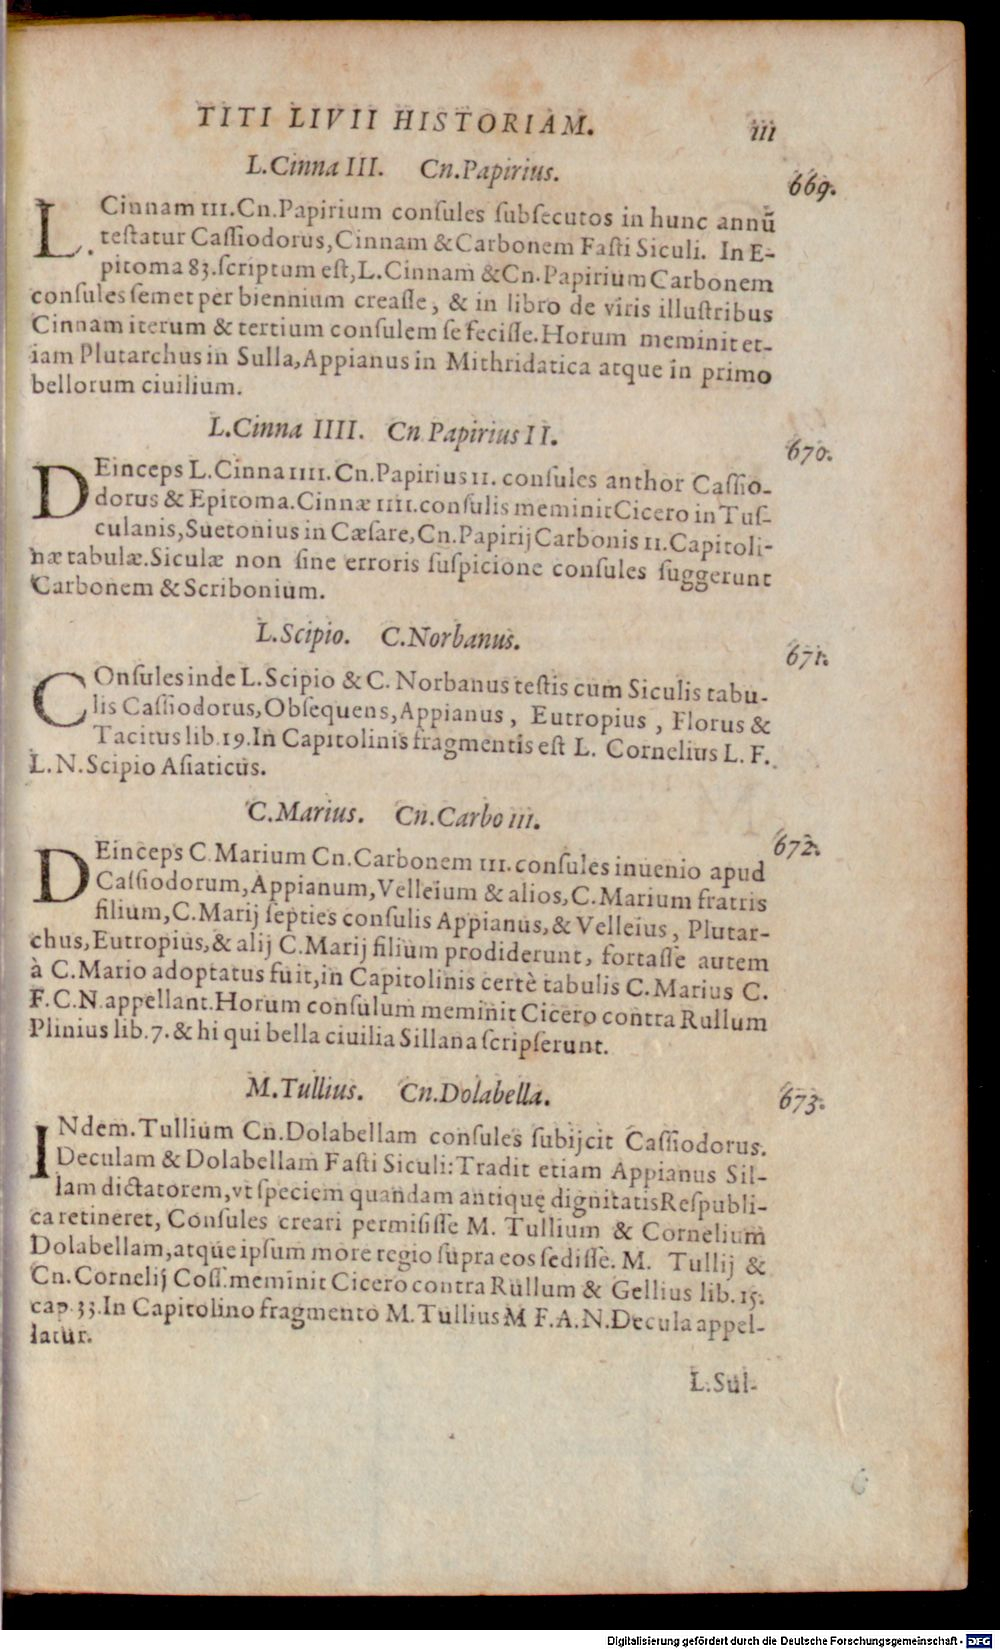 TITI LIVII HISTORIAM. iii
L.Cinna III. Cn.Papirius. 669.
L. Cinnam III.Cn.Papirium conſules ſubſecutos in hunc annũ
teſtatur Caſſiodorus,Cinnam & Carbonem Faſti Siculi. In E-
pitoma 83.ſcriptum eſt,L.Cinnam & Cn.Papirium Carbonem
conſules ſemet per biennium creaſſe, & in libro de viris illuſtribus
Cinnam iterum & tertium conſulem ſe feciſſe.Horum meminit et-
iam Plutarchus in Sulla,Appianus in Mithridatica atque in primo
bellorum ciuilium.
L.Cinna IIII. Cn Papirius II. 670.
DEinceps L.Cinna IIII.Cn.Papirius II. conſules anthor Caſſio-
dorus & Epitoma.Cinnæ IIII.conſulis meminit Cicero in Tuſ-
culanis,Suetonius in Cæſare,Cn.Papirij Carbonis II.Capitoli-
næ tabulæ.Siculæ non ſine erroris ſuſpicione conſules ſuggerunt
Carbonem & Scribonium.
L.Scipio. C.Norbanus. 671.
COnſules inde L.Scipio & C. Norbanus teſtis cum Siculis tabu-
lis Caſſiodorus,Obſequens,Appianus, Eutropius, Florus &
Tacitus lib.19.In Capitolinis fragmentis eſt L. Cornelius L. F.
L.N.Scipio Aſiaticus.
C.Marius. Cn.Carbo iii. 672.
DEinceps C.Marium Cn.Carbonem III.conſules inuenio apud
Caſſiodorum,Appianum,Velleium & alios,C.Marium fratris
filium,C.Marij ſepties conſulis Appianus,& Velleius, Plutar-
chus,Eutropius,& alij C.Marij filium prodiderunt, fortaſſe autem
à C.Mario adoptatus fuit,in Capitolinis certè tabulis C.Marius C.
F.C.N.appellant.Horum conſulum meminit Cicero contra Rullum
Plinius lib.7.& hi qui bella ciuilia Sillana ſcripſerunt.
M.Tullius. Cn.Dolabella. 673.
INdem.Tullium Cn.Dolabellam conſules ſubijcit Caſſiodorus.
Deculam & Dolabellam Faſti Siculi:Tradit etiam Appianus Sil-
lam dictatorem,vt ſpeciem quandam antiquę dignitatis Reſpubli-
ca retineret, Conſules creari permiſiſſe M. Tullium & Cornelium
Dolabellam,atque ipſum more regio ſupra eos ſediſſe. M. Tullij &
Cn.Cornelij Coſſ.meminit Cicero contra Rullum & Gellius lib.15.
cap.33.In Capitolino fragmento M.Tullius M F.A.N.Decula appel-
latur.
L.Sul-
Digitalisierung gefördert durch die Deutsche Forschungsgemeinschaft - DFG